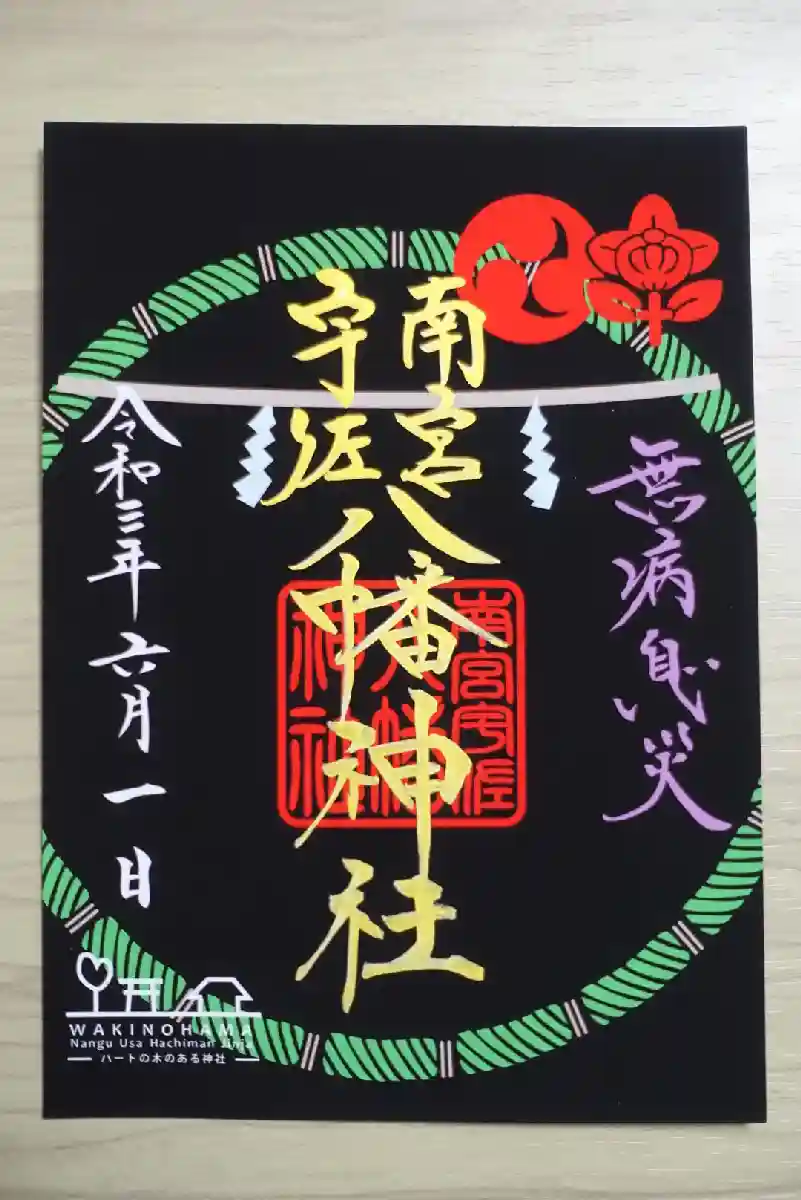 無病息災
南宮
宇佐
八幡神社
南宮宇佐
八幡
神社
令和三年六月一日
WAKINOHAMA
Nangu Usa Hachiman Jinja
ハートの木のある神社